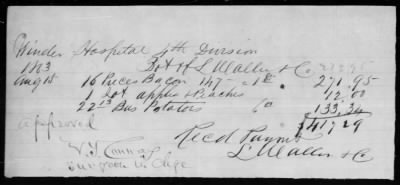 Winder Hospital 4th Division
1863 Bot of L Waller & Co
Aug 18 16 Pieces Bacon 147 - 271.95
1 Lot apples & Peaches 12.00
22 13 Bus Potatoes 133.34
$417.29
approved
Recd Paymt
L Waller & Co
Surgeon in Chge